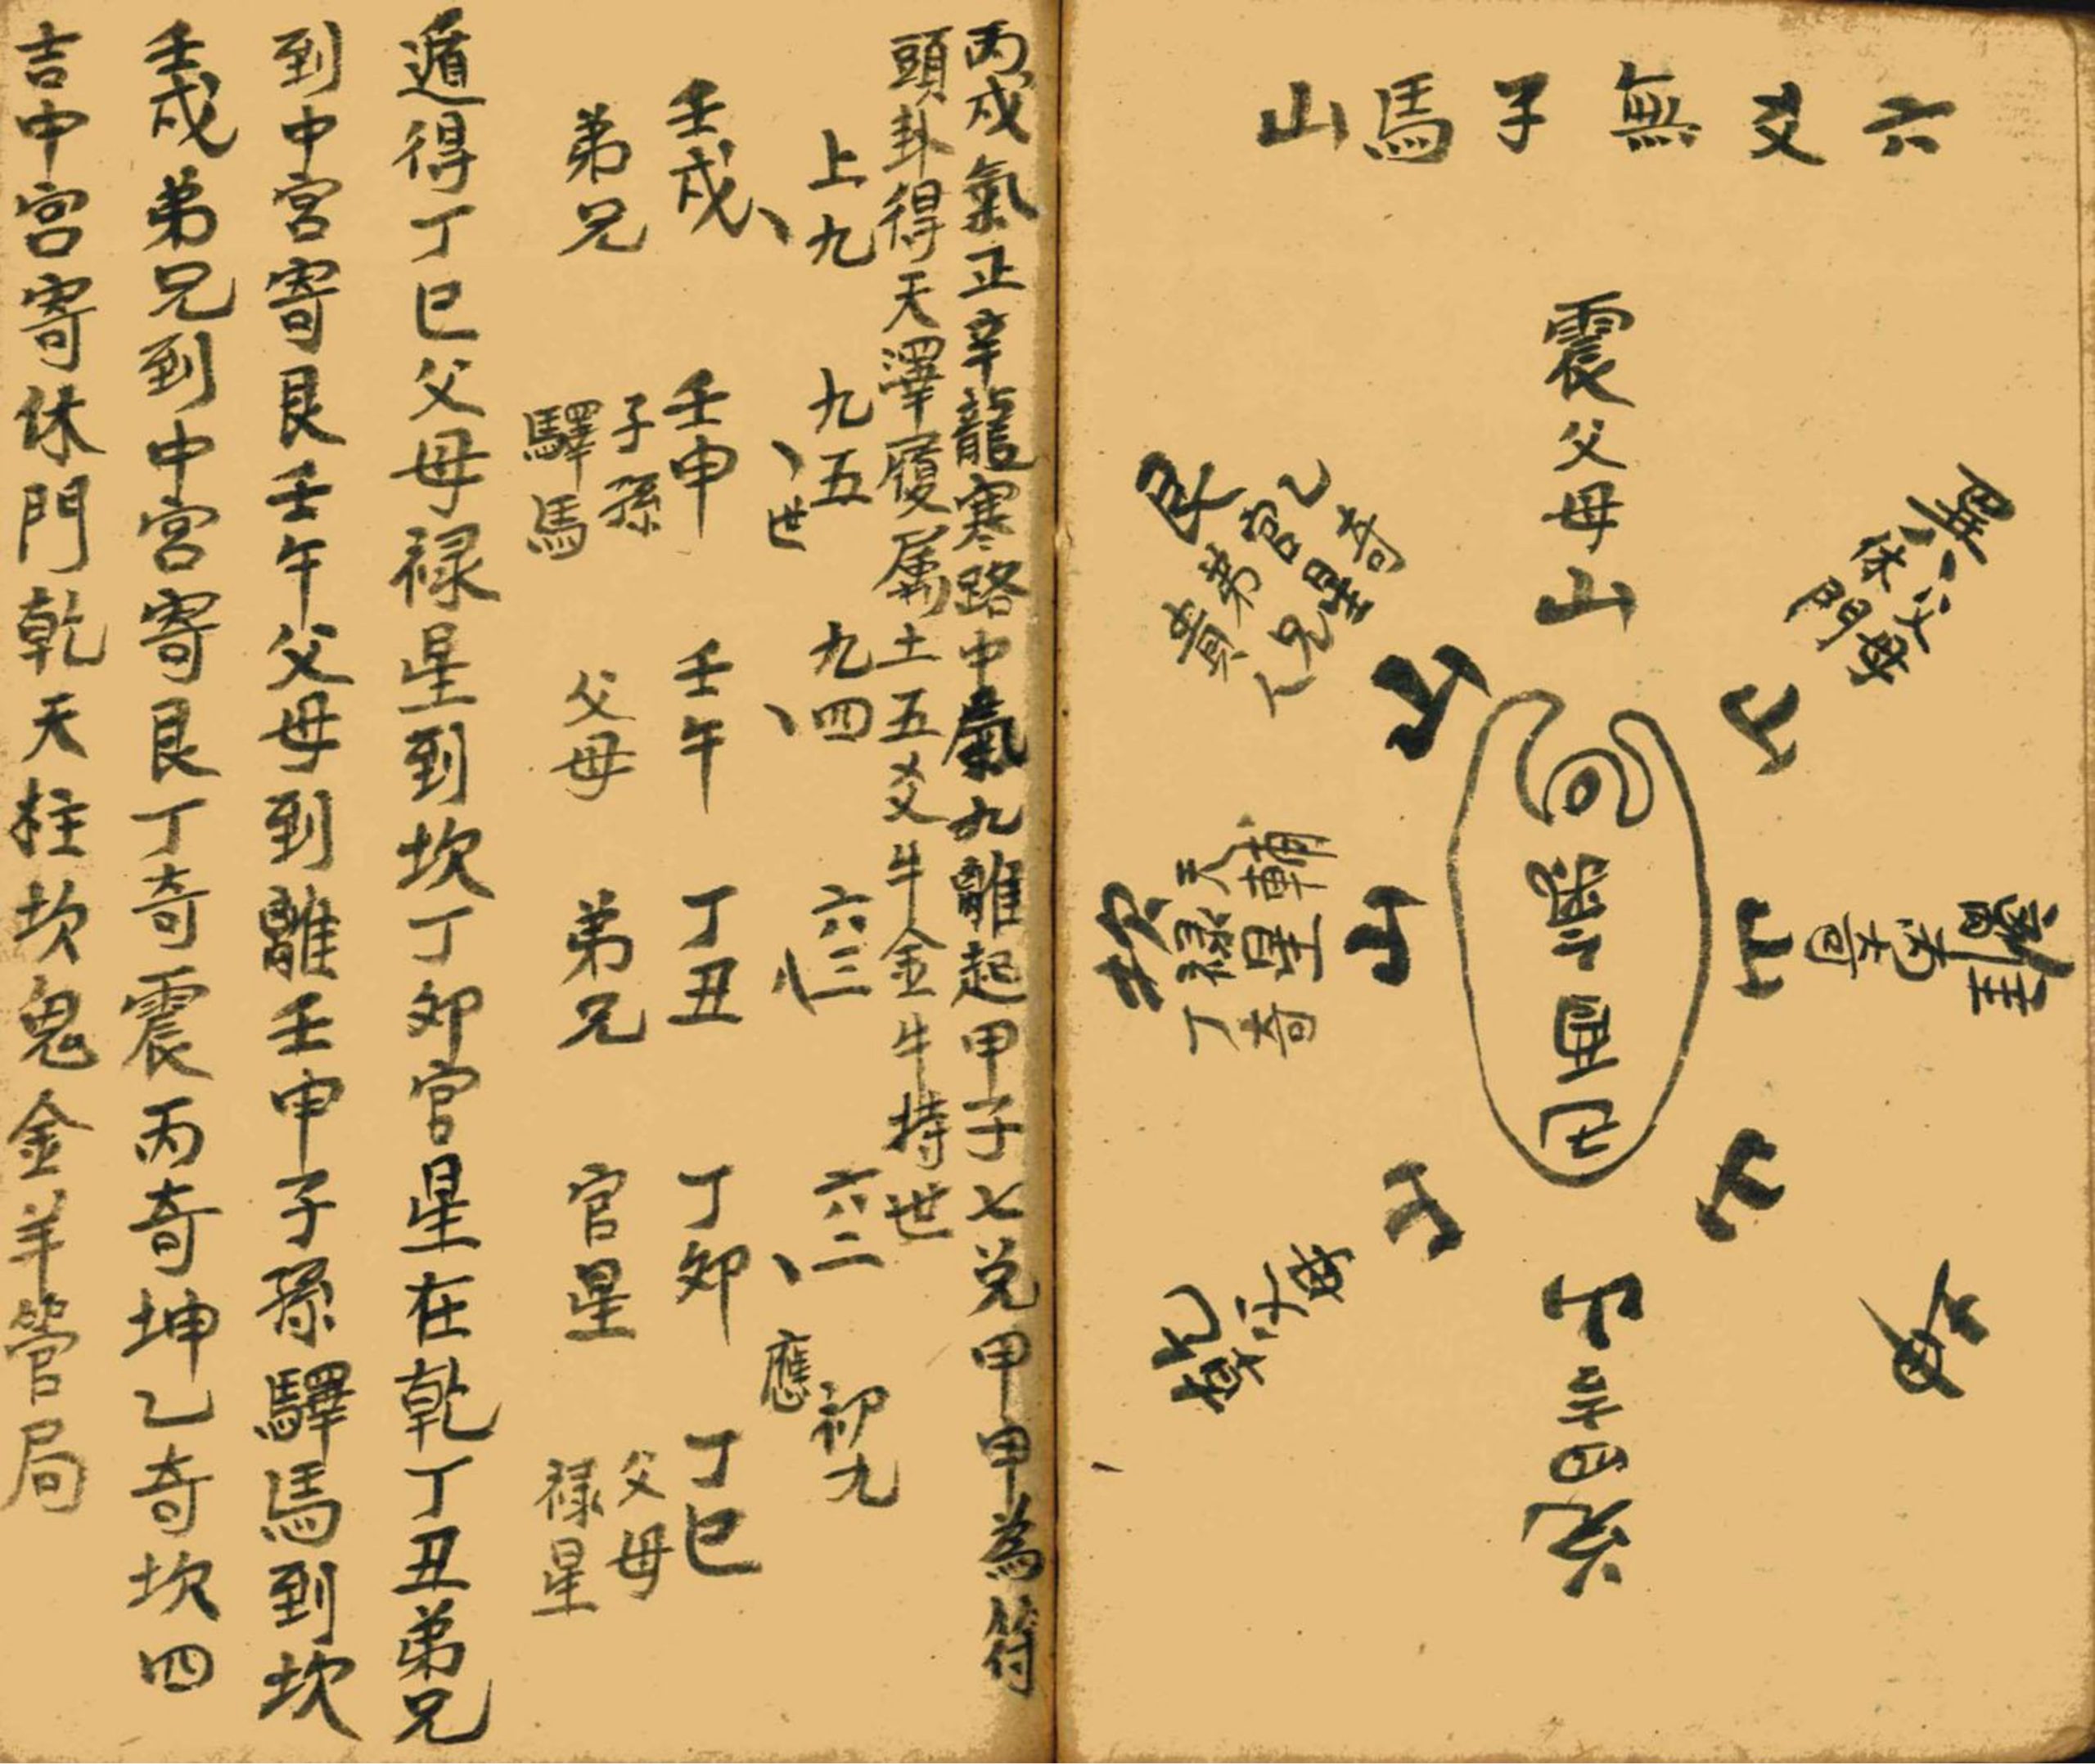 六爻無子馬山
震父母山
巽父母
休門
山
離
丙奇
山
山
山
兄
山
山
坎
天輔
禄星
丁奇
山
艮
弟兄
貴人
乙奇
宮星
丙戍氣正辛龍寒路中氣九離起甲子七兑甲甲為符
頭卦得天澤履属土五爻牛金牛持世
上九 九五 九四 六三 六二 初九
丶 丶世 丶 丶 應
壬戍 壬申 壬午 丁丑 丁卯 丁巳
弟兄 子孫 父母 弟兄 官星 父母
驛馬 禄星
遁得丁巳父母禄星到坎丁卯官星在乾丁丑弟兄
到中宮寄艮壬午父母到離壬申子孫驛馬到坎
壬戍弟兄到中宮寄艮丁奇震丙奇坤乙奇坎四
吉中宮寄休門乾天柱坎鬼金羊管局